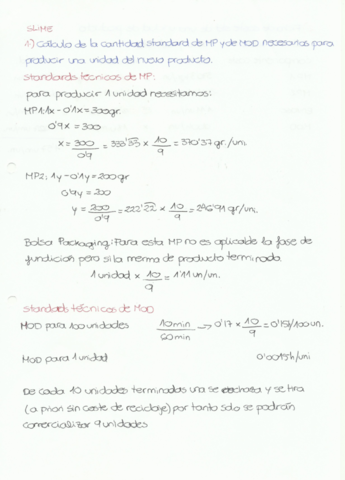 SLIME
1) Cálculo de la cantidad standard de MP y de MOD necesarias para
producir una unidad del nuevo producto.
Standards técnicos de MP:
para producir 1 unidad necesitamos:
MP1: 1x - 0'1x = 300gr.
0'9x = 300
x = 300/0'9 = 333'33 × 10/9 = 370'37 gr./uni.
MP2: 1y - 0'1y = 200gr
0'9y = 200
y = 200/0'9 = 222'22 × 10/9 = 246'91 gr/uni.
Bolsa Packaging: Para esta MP no es aplicable la fase de
fundición pero si la merma de producto terminado.
1 unidad × 10/9 = 1'11 un/un.
Standards técnicos de MOD
MOD para 100 unidades 10min/60min → 0'17 × 10/9 = /100un.
MOD para 1 unidad h/uni
De cada 10 unidades terminadas una se desecha y se tira
(a priori sin coste de reciclaje) por tanto solo se podrán
comercializar 9 unidades